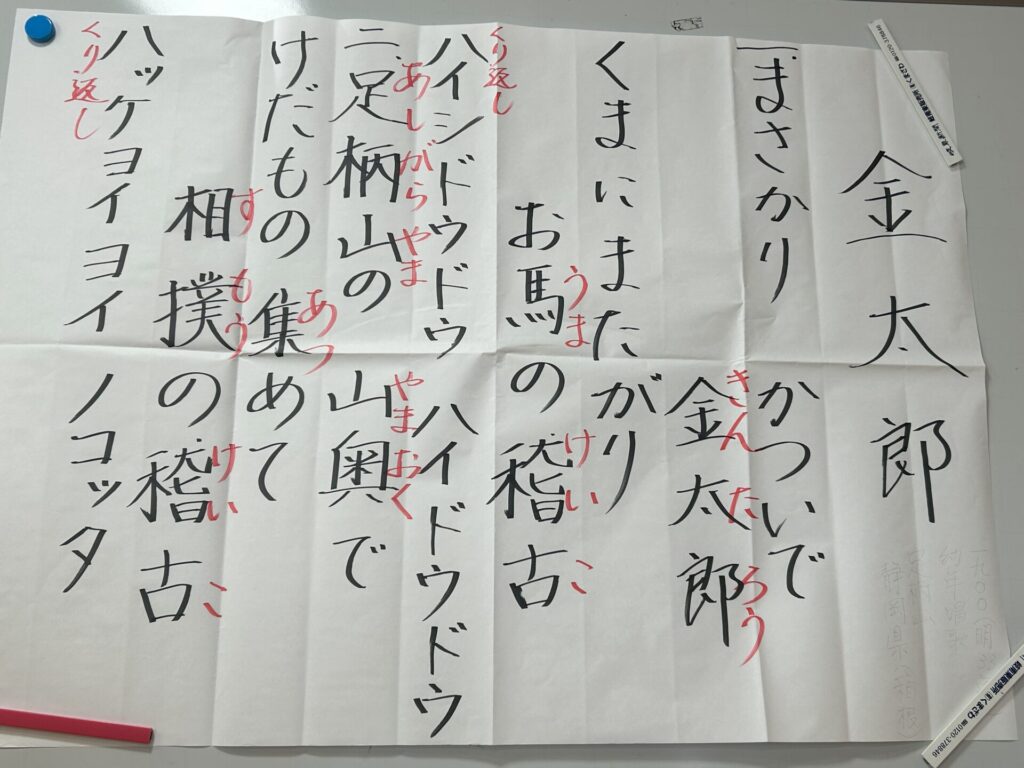 金太郎
一、まさかり かついで
きんたろう
金太郎
くまにまたがり
うま けいこ
お馬の稽古
くり返し
ハイシドウドウ ハイドウドウ
あしがらやま やまおく
二、足柄山の 山奥で
あつ
けだもの 集めて
すもう けいこ
相撲の稽古
くり返し
ハッケヨイヨイ ノコッタ
一九〇〇(明
静岡県(箱根)
0120-378846
0120-378846